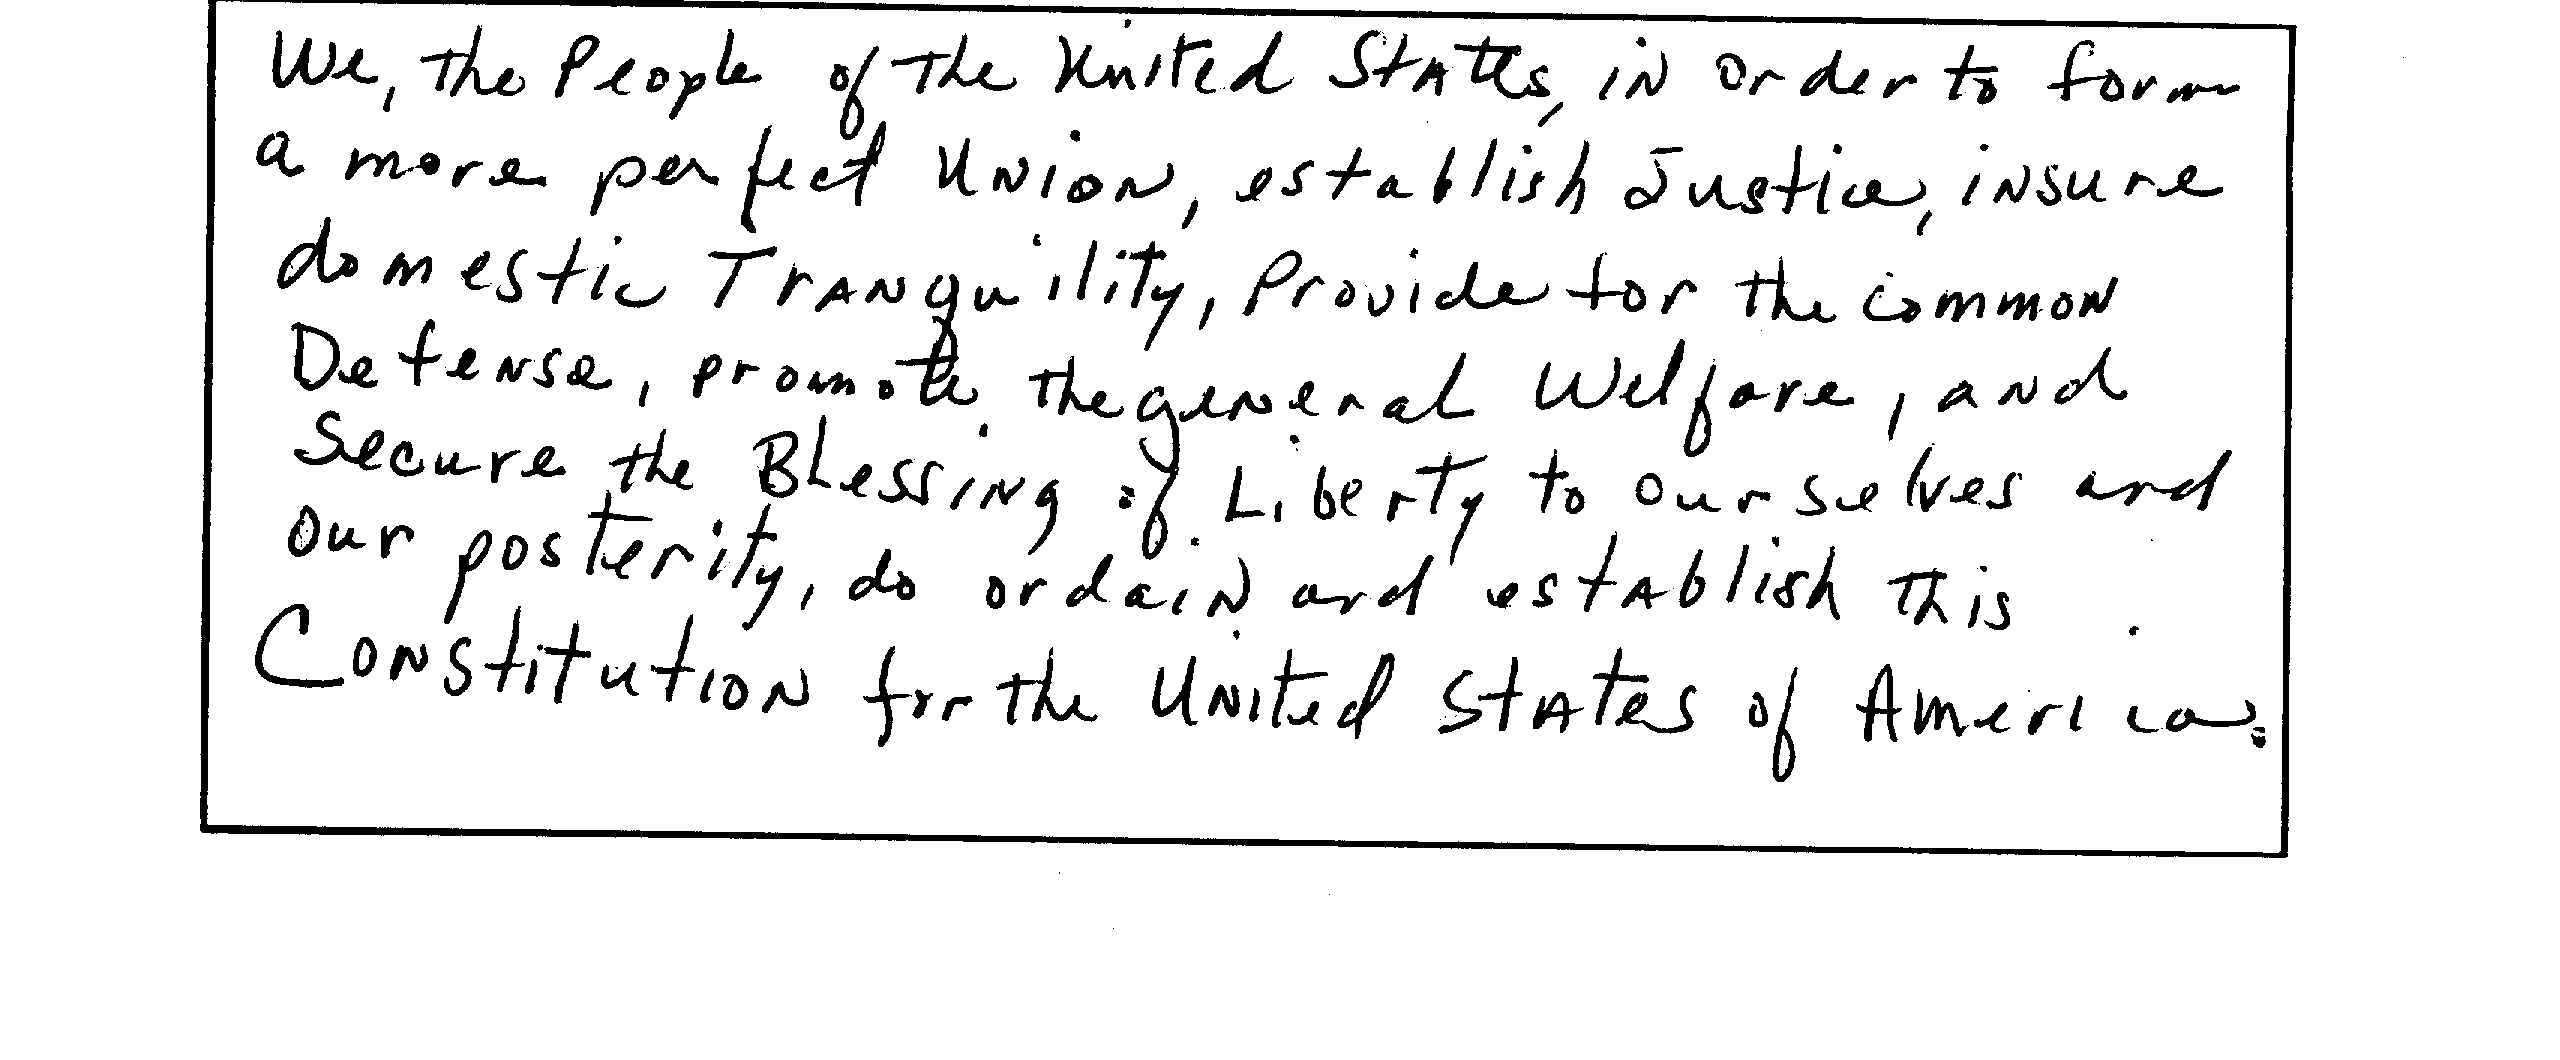 We, the People of the United States, in order to form
a more perfect Union, establish Justice, insure
domestic Tranquility, Provide for the common
Defense, promote the general Welfare, and
Secure the Blessing of Liberty to ourselves and
our posterity, do ordain and establish this
Constitution for the United States of America.